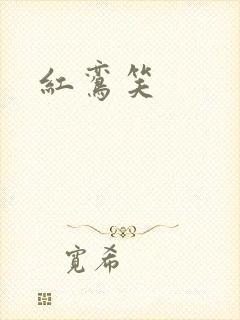 紅鸞笑
寬希